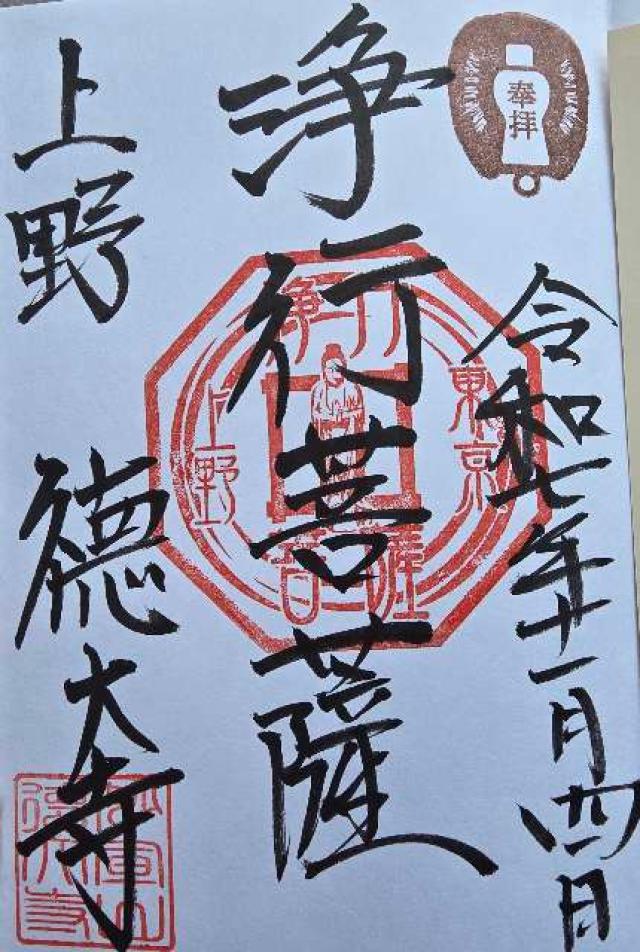 奉拝
令和七年十一月四日
浄行菩薩
上野 徳大寺
東京
上野
浄行
菩薩